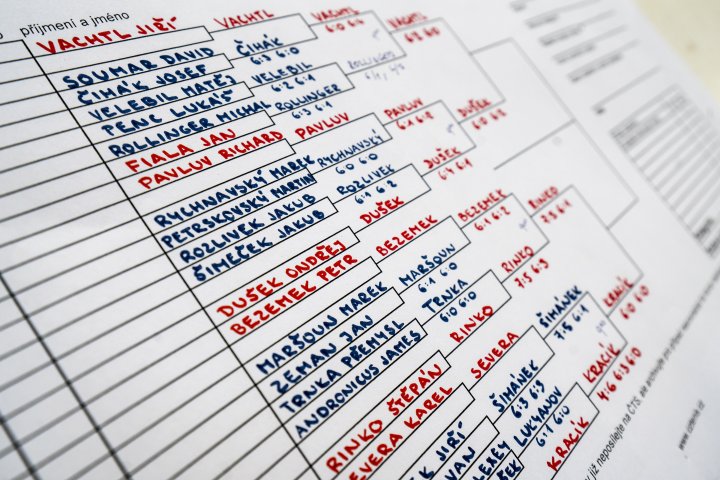 příjmení a jméno
VACHTL JIŘÍ
SOUMAR DAVID
ČIHÁK JOSEF
VELEBIL MATĚJ
PENC LUKÁŠ
ROLLINGER MICHAL
FIALA JAN
PAVLUV RICHARD
RYCHNAVSKÝ MAREK
PETRSKOVSKÝ MARTIN
ROZLIVEK JAKUB
ŠIMEČEK JAKUB
DUŠEK ONDŘEJ
BEZEMEK PETR
MARŠOUN MAREK
ZEMAN JAN
TRNKA PŘEMYSL
ANDRONICUS JAMES
RINKO ŠTĚPÁN
SEVERA KAREL
VACHTL
ČIHÁK
6:3 6:0
VELEBIL
6:2 6:1
ROLLINGER
6:3 6:1
PAVLUV
RYCHNAVSKÝ
6:0 6:0
ROZLIVEK
6:1 6:2
DUŠEK
BEZEMEK
MARŠOUN
6:1 6:0
TRNKA
6:0 6:0
RINKO
SEVERA
ŠIMÁNEK
6:3 6:3
LUKJANOV
6:1 6:0
KRAČÍK
VACHTL
6:0 6:4
ROLLINGER
PAVLUV
6:1 6:0
DUŠEK
6:4 6:1
BEZEMEK
6:1 6:2
RINKO
7:5 6:3
ŠIMÁNEK
7:5 6:4
KRAČÍK
4:6 6:3 6:0
VACHTL
6:2 6:0
DUŠEK
6:0 6:2
RINKO
7:5 6:1
KRAČÍK
6:0 6:0
již neposílejte na ČTS, ale archivujte pro případ